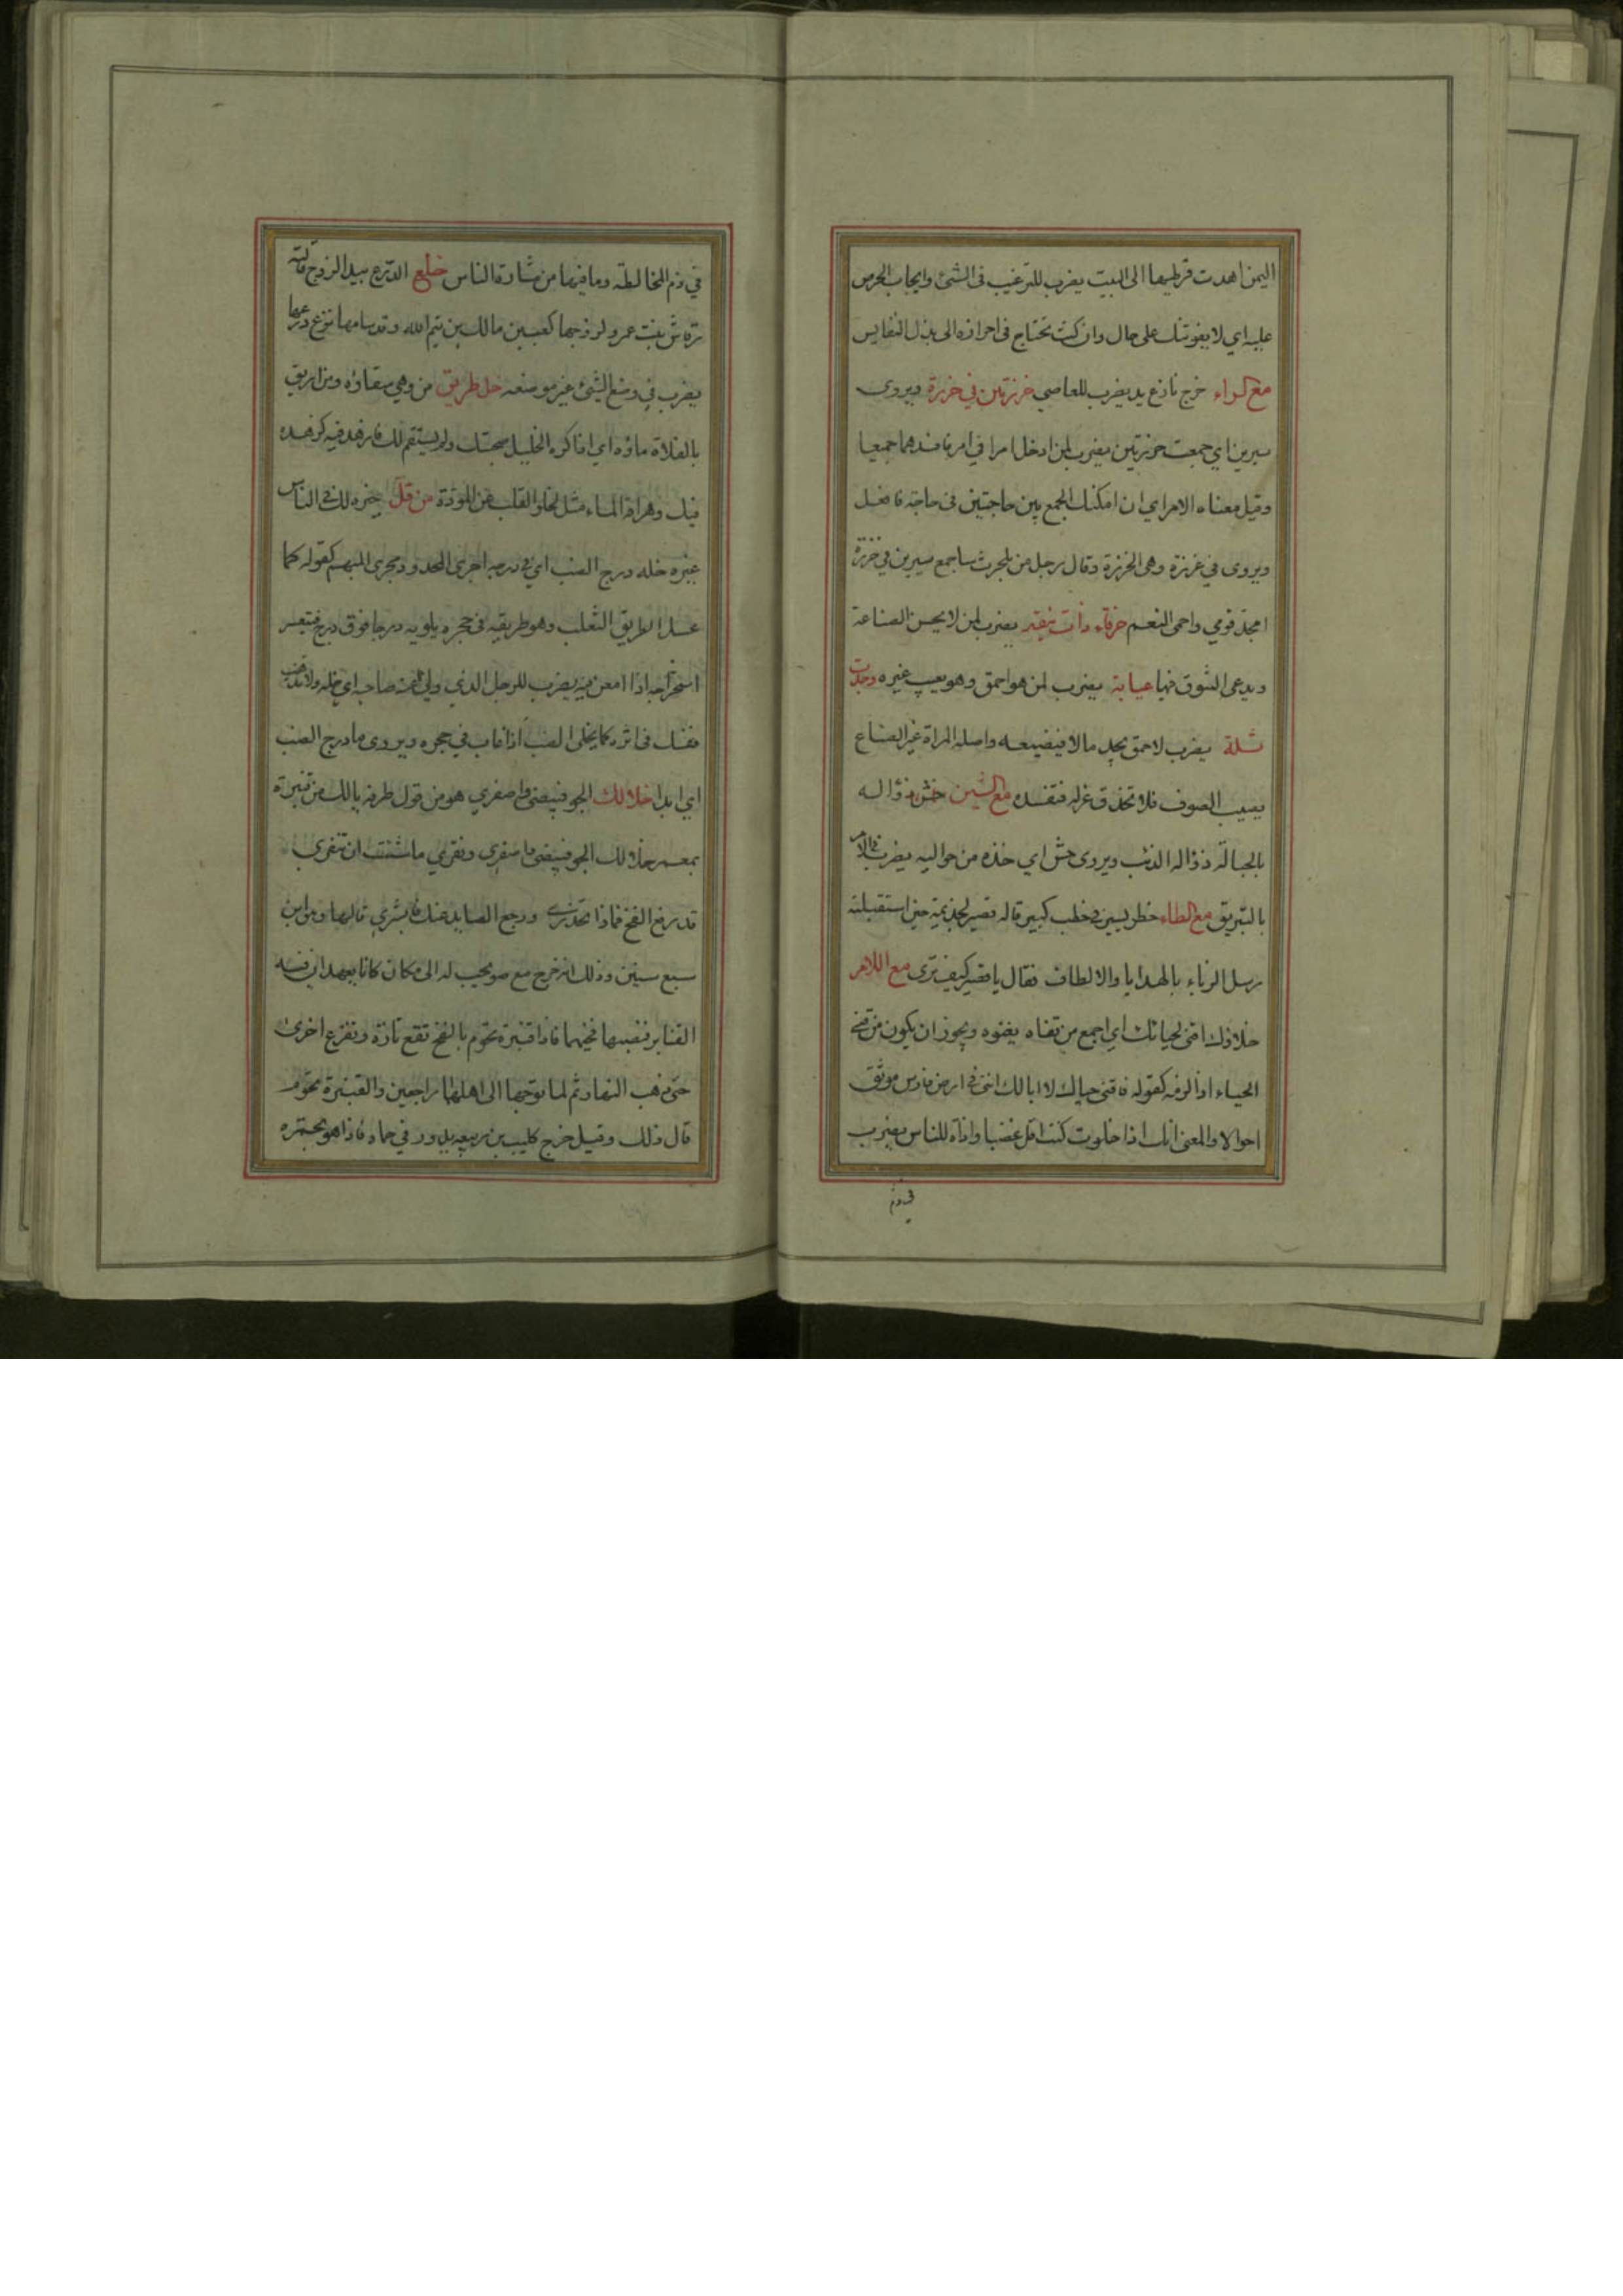 اليمن اهدت قرطيها الى البيت يضرب للترغيب فى الشئ وايجاب الحرص
عليه اي لا يفوتنك على حال وان كنت تحتاج فى احرازه الى بذل النفايس
مع الراء خرج نازع يد يضرب للعاصي خرزتين في خرزة ويروى
سيرين اي جمعت خرزتين يضرب لمن ادخل امرا في امر فافسدهما جميعا
وقيل معناه الامر اي ان امكنك الجمع بين حاجتين فى حاجة فافعل
ويروى في غرزة وهى الخرزة وقال رجل من بلحرث ساجمع سيرين في خرزة
امجد قومي واحمى النعم خرقاء ذات نيقة يضرب لمن لا يحسن الصناعة
ويدعى التنوق فيها عيابة يضرب لمن هو احمق وهو يعيب غيره وجدت
ثلة يضرب لاحمق يجد مالا فيضيعه واصله المراة غير الصناع
يصيب الصوف فلا تحذق غزله فتفسده مع الشين خش ذؤاله
بالحبالة ذؤاله الذئب ويروى حش اي خذه من حواليه يضرب فى الامر
بالتبريق مع الطاء خطر يسير فى خطب كبير قاله قصير لجذيمة حين استقبلته
رسل الزباء بالهدايا والالطاف فقال يا قصير كيف ترى مع اللام
خلاؤك اقنى لحيائك اي اجمع من قناه يقنوه ويجوز ان يكون من قنى
الحياء اذا لزمه كقوله فاقنى حياك لا ابا لك اننى فى ارض فارس موثق
احوالا والمعنى انك اذا خلوت كنت اقل غضبا واذاه للناس يضرب
في ذم
في ذم المخالطة وما فيها من مشارة الناس خلع الدرع بيد الزوج قالته
رقاش بنت عمرو لزوجها كعب بن مالك بن تيم الله وقد سامها نزع درعها
يضرب في وضع الشئ غير موضعه خل طريق من وهي سقاؤه ومن اهريق
بالفلاة ماؤه اي اذا كره الخليل صحبتك ولم يستقم لك فازهد فيه كزهده
فيك وهراقة الماء مثل لخلو القلب عن المودة من قل خيره لك فى الناس
غيره خله درج الضب اي فى درجه اجرى المحدود مجرى المبهم كقوله كما
عسل الطريق الثعلب وهو طريقه فى جحره يلويه درجا فوق درج فيتعسر
استخراجه اذا امعن فيه يضرب للرجل الذي ولى عنه صاحبه اي خله ولا تذهب
نفسك فى اثره كما يخلى الضب اذا غاب في جحره ويروى ما درج الضب
اي ابدا خلا لك الجو فبيضى واصفري هو من قول طرفه يا لك من قنبرة
بمعمر خلا لك الجو فبيضى واصفري ونقري ما شئت ان تنقري
قد رفع الفخ فماذا تحذري ورجع الصايد عنك فابشري قالها وهو ابن
سبع سنين وذلك انه خرج مع صويحب له الى مكان كانا يعهدان فيه
القنابر فنصبها فخيهما فاذا قنبرة تحوم بالفخ تقع تارة وتفزع اخرى
حتى ذهب النهار ثم لما توجها الى اهلهما راجعين والقنبرة تحوم
قال ذلك وقيل خرج كليب بن ربيعه يدور في حماه فاذا هو بحمره